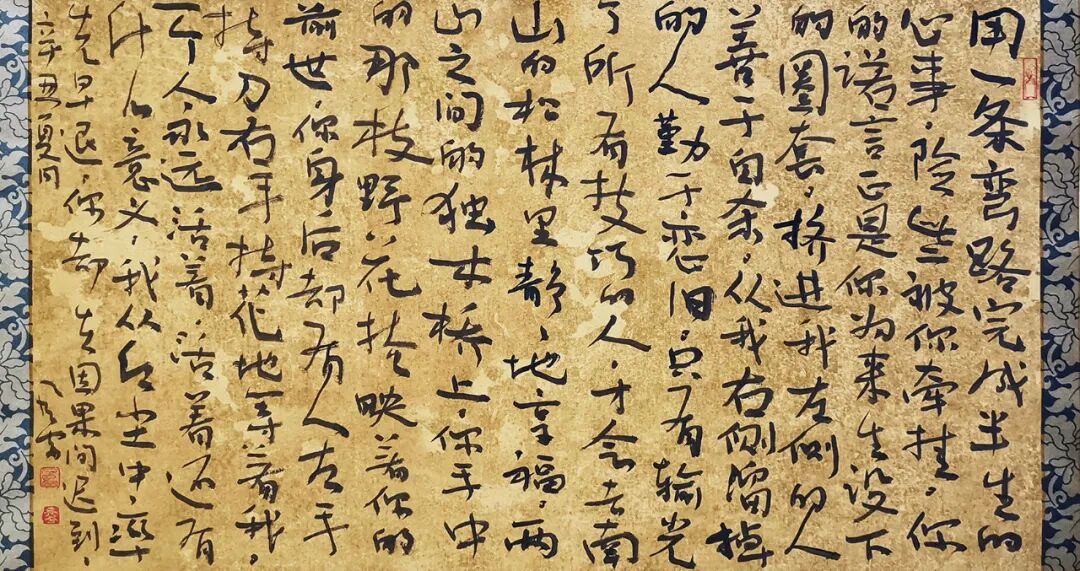 用一条弯路完成半生的
心事,险些被你牵挂。你
的诺言正是你为来生设下
的圈套。挤进我左侧的人
善于自杀,从我右侧溜掉
的人勤于恋旧,只有输光
了所有技巧的人,才会去南
山的松林里静静地享福。两
山之间的独木桥上,你手中
的那枝野花掩映着你的
前世,你身后却有人左手
持刀右手持花地等着我。
一个人永远活着,活着还有
什么意义,我从红尘中率
先早退,你却在因果间迟到。
辛丑夏月